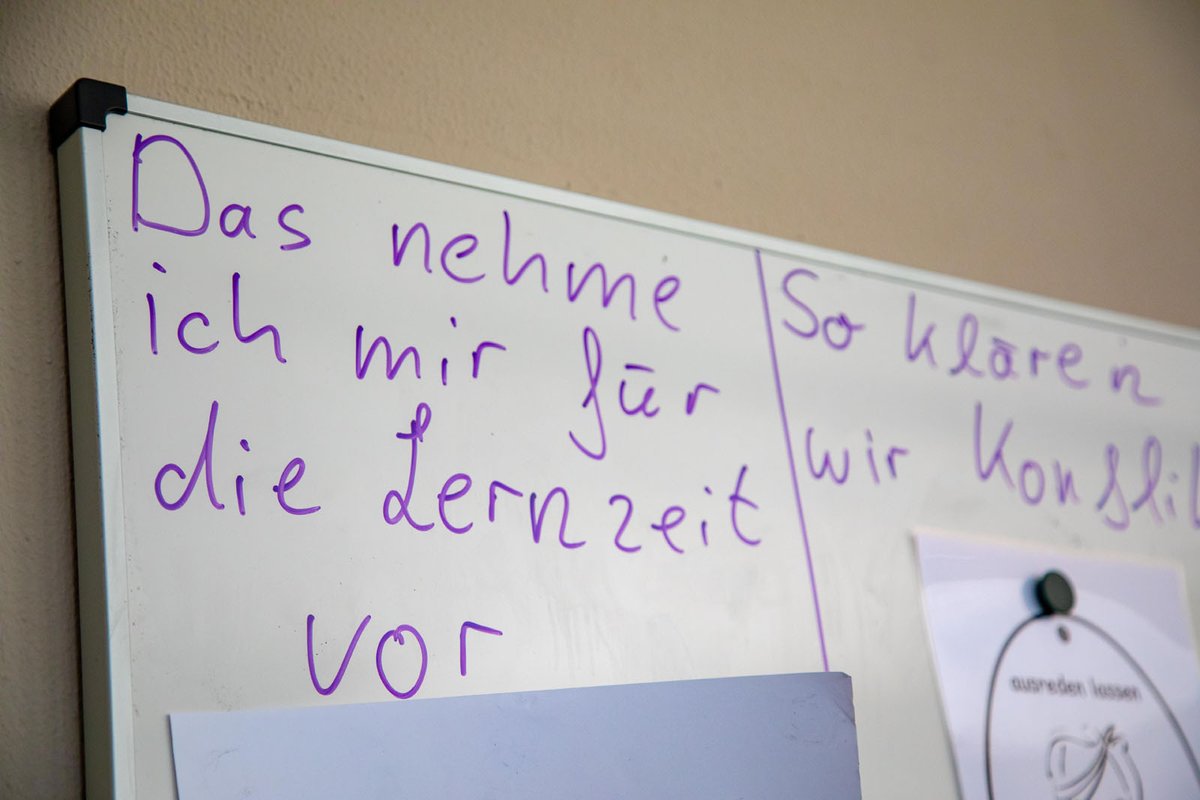 Das nehme
ich mir für
die Lernzeit
vor
So klären
wir
ausreden lassen